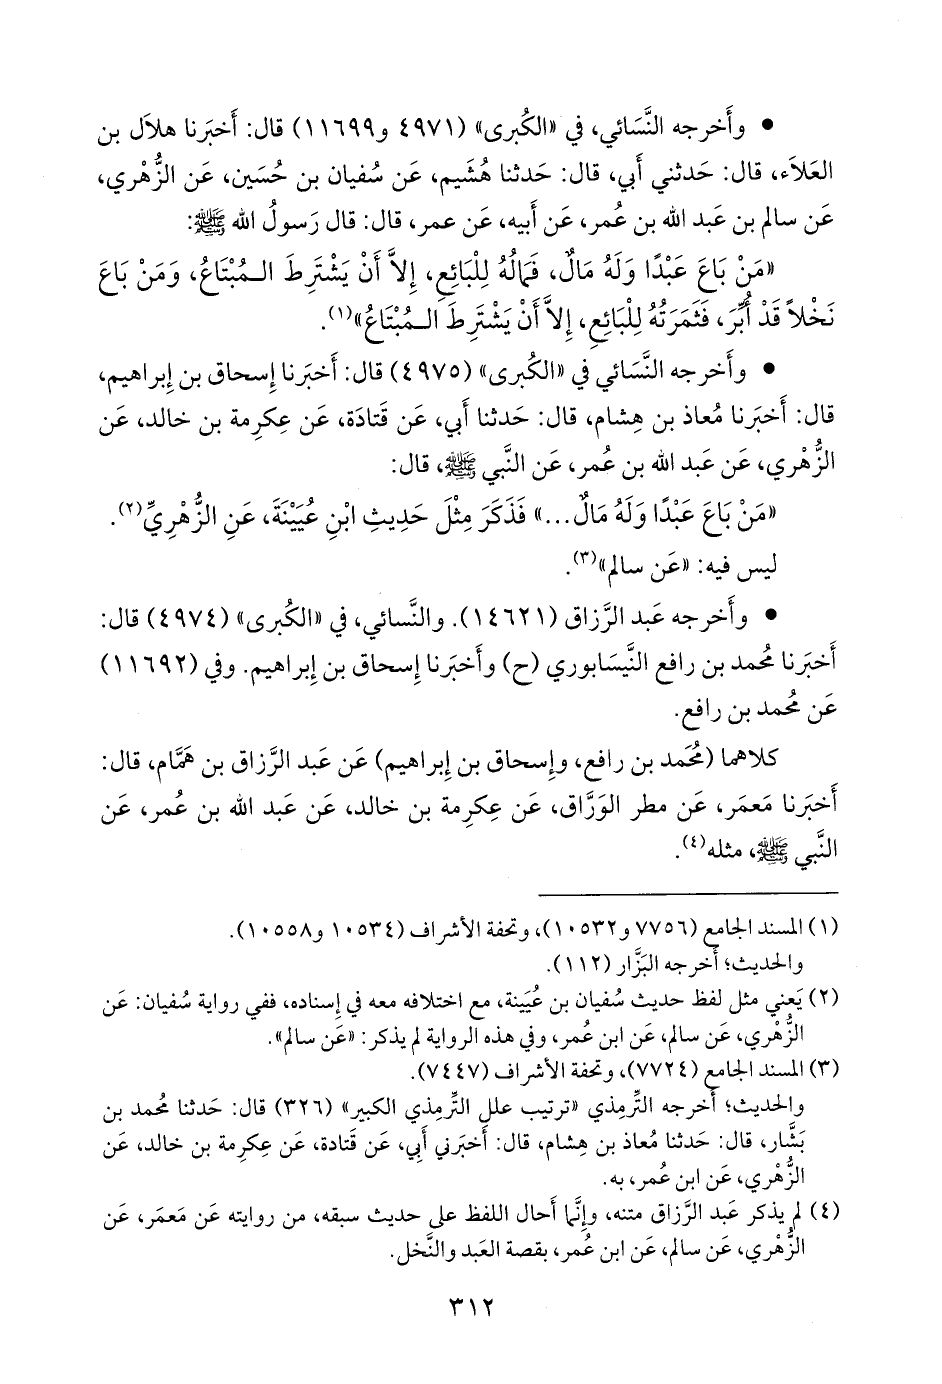 • وأَخرجه النَّسَائي، في «الكُبرى» (٤٩٧١ و١١٦٩٩) قال: أَخبَرنا هلاَل بن
العَلاَء، قال: حَدثني أَبي، قال: حَدثنا هُشَيم، عَن سُفيان بن حُسَين، عَن الزُّهْري،
عَن سالم بن عَبد الله بن عُمر، عَن أَبيه، عَن عمر، قال: قال رَسولُ الله ﷺ:
«مَنْ بَاعَ عَبْدًا وَلَهُ مَالٌ، فَمَالُهُ لِلْبَائِعِ، إِلاَّ أَنْ يَشْتَرِطَ الـمُبْتَاعُ، وَمَنْ بَاعَ
نَخْلاً قَدْ أُبِّرَ، فَثَمَرَتُهُ لِلْبَائِعِ، إِلاَّ أَنْ يَشْتَرِطَ الـمُبْتَاعُ»(١).
• وأَخرجه النَّسَائي في «الكُبرى» (٤٩٧٥) قال: أَخبَرنا إِسحاق بن إِبراهيم،
قال: أَخبَرنا مُعاذ بن هِشام، قال: حَدثنا أَبي، عَن قَتادَة، عَن عِكرِمة بن خالد، عَن
الزُّهْري، عَن عَبد الله بن عُمر، عَن النَّبي ﷺ، قال:
«مَنْ بَاعَ عَبْدًا وَلَهُ مَالٌ...» فَذَكَرَ مِثْلَ حَدِيثِ ابْنِ عُيَيْنَةَ، عَنِ الزُّهْرِيِّ(٢).
ليس فيه: «عَن سالم»(٣).
• وأَخرجه عَبد الرَّزاق (١٤٦٢١). والنَّسائي، في «الكُبرى» (٤٩٧٤) قال:
أَخبَرنا مُحمد بن رافع النَّيسَابوري (ح) وأَخبَرنا إِسحاق بن إِبراهيم. وفي (١١٦٩٢)
عَن مُحمد بن رافع.
كلاهما (مُحَمد بن رافع، وإِسحاق بن إِبراهيم) عَن عَبد الرَّزاق بن هَمَّام، قال:
أَخبَرنا مَعمَر، عَن مطر الوَرَّاق، عَن عِكرِمة بن خالد، عَن عَبد الله بن عُمر، عَن
النَّبي ﷺ، مثله(٤).
(١) المسند الجامع (٧٧٥٦ و١٠٥٣٢)، وتحفة الأَشراف (١٠٥٣٤ و١٠٥٥٨).
والحديث؛ أَخرجه البَزَّار (١١٢).
(٢) يَعني مثل لفظ حديث سُفيان بن عُيَينة، مع اختلافه معه في إِسناده، ففي رواية سُفيان: عَن
الزُّهْري، عَن سالم، عَن ابن عُمر، وفي هذه الرواية لم يذكر: «عَن سالم».
(٣) المسند الجامع (٧٧٢٤)، وتحفة الأَشراف (٧٤٤٧).
والحديث؛ أَخرجه التِّرمِذي «ترتيب علل التِّرمِذي الكبير» (٣٢٦) قال: حَدثنا مُحمد بن
بَشَّار، قال: حَدثنا مُعاذ بن هِشام، قال: أَخبَرني أَبي، عَن قَتادة، عَن عِكرِمة بن خالد، عَن
الزُّهْري، عَن ابن عُمر، به.
(٤) لم يذكر عَبد الرَّزاق متنه، وإِنَّما أَحال اللفظ على حديث سبقه، من روايته عَن مَعمَر، عَن
الزُّهْري، عَن سالم، عَن ابن عُمر، بقصة العَبد والنَّخل.
٣١٢